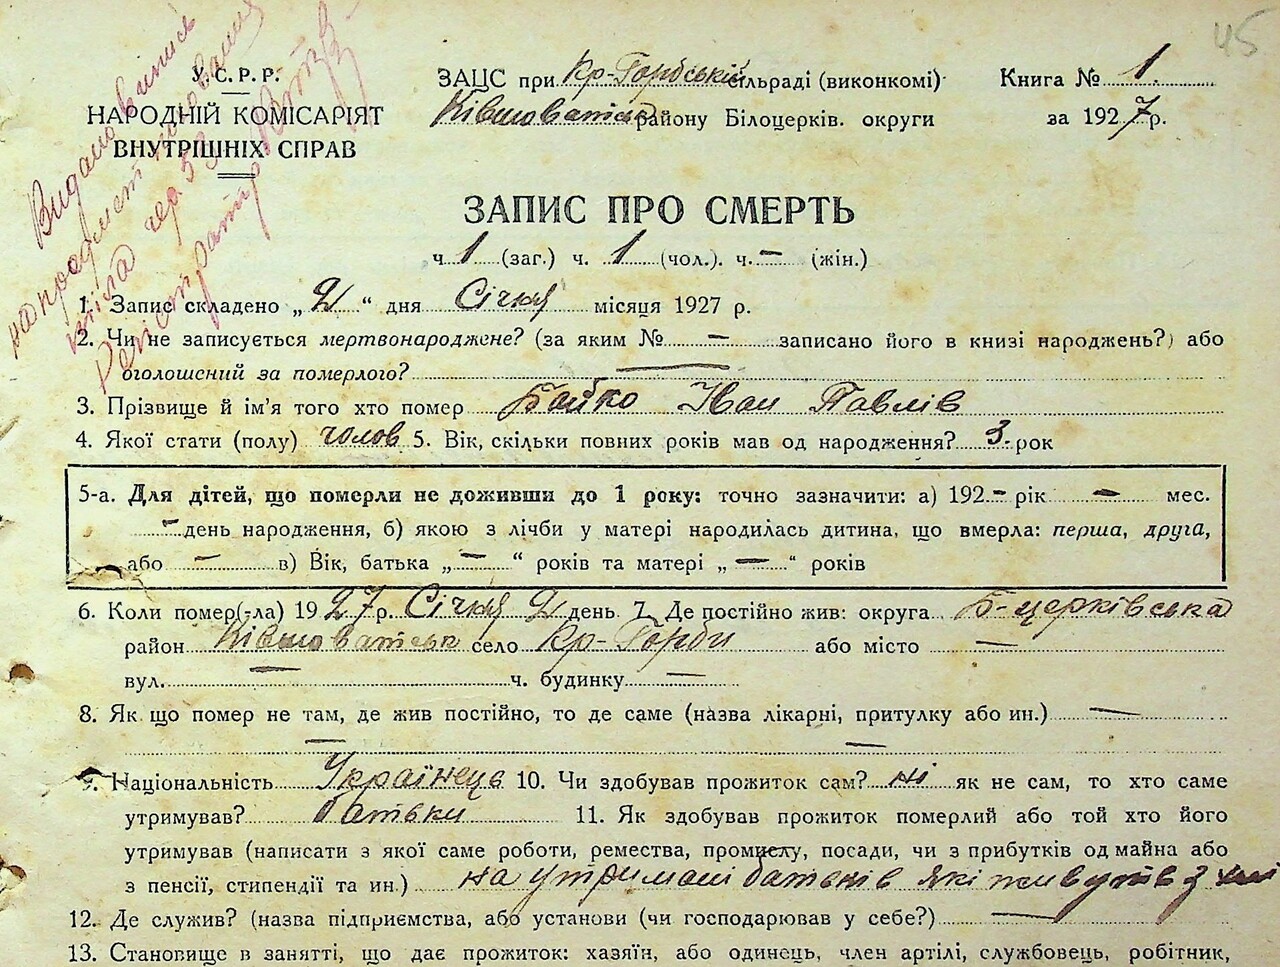 45
Видано виписъ
на предмет поховання
тіла
У.С.Р.Р.
НАРОДНІЙ КОМІСАРІЯТ
ВНУТРІШНІХ СПРАВ
ЗАЦС при Кр-Горбській сільраді (виконкомі)
Ківшоватськ району Білоцерків. округи
Книга № 1.
за 1927 р.
ЗАПИС ПРО СМЕРТЬ
ч. 1 (заг.) ч. 1 (чол.). ч. – (жін.)
1. Запис складено „2“ дня Січня місяця 1927 р.
2. Чи не записується мертвонароджене? (за яким № – записано його в книзі народжень?) або
оголошений за померлого? —
3. Прізвище й ім'я того хто помер Бойко Іван Павлів
4. Якої стати (полу) чолов 5. Вік, скільки повних років мав од народження? 3. рок
5-а. Для дітей, що померли не доживши до 1 року: точно зазначити: а) 192 – рік – мес.
– день народження, б) якою з лічби у матері народилась дитина, що вмерла: перша, друга,
або – в) Вік, батька „ – “ років та матері „ – “ років
6. Коли помер(-ла) 1927 р. Січня 2 день 7. Де постійно жив: округа Б-церківська
район Ківшоватськ село Кр-Горби або місто —
вул. — ч. будинку —
8. Як що помер не там, де жив постійно, то де саме (назва лікарні, притулку або ин.) —
— —
9. Національність Українець 10. Чи здобував прожиток сам? ні як не сам, то хто саме
утримував? батьки 11. Як здобував прожиток померлий або той хто його
утримував (написати з якої саме роботи, ремества, промислу, посади, чи з прибутків од майна або
з пенсії, стипендії та ин.) на утримані батьків які живуть з
12. Де служив? (назва підприємства, або установи (чи господарював у себе?) —
13. Становище в занятті, що дає прожиток: хазяїн, або одинець, член артілі, службовець, робітник,